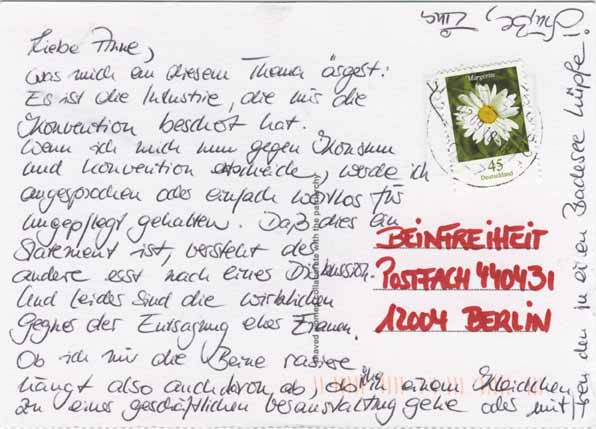 Liebe Anne,
was mich an diesem Thema ärgert:
Es ist die Industrie, die mir die
Konvention beschert hat.
Wenn ich mich nun gegen Konsum
und Konvention entscheide, werde ich
angesprochen oder einfach wortlos für
ungepflegt gehalten. Daß dies ein
Statement ist, versteht der
andere erst nach einer Diskussion.
Und leider sind die wirklichen
Gegner der Entsagung eher Frauen.
Ob ich mir die Beine rasiere
hängt also auch davon ab, ob ich in einem Kleidchen
zu einer geschäftlichen Veranstaltung gehe oder mit
den in einen Badesee hüpfe!
Grüße,
Margerite
45
Deutschland
BEINFREIHEIT
POSTFACH 440431
12004 BERLIN
shaved women collaborate with the patriarchy